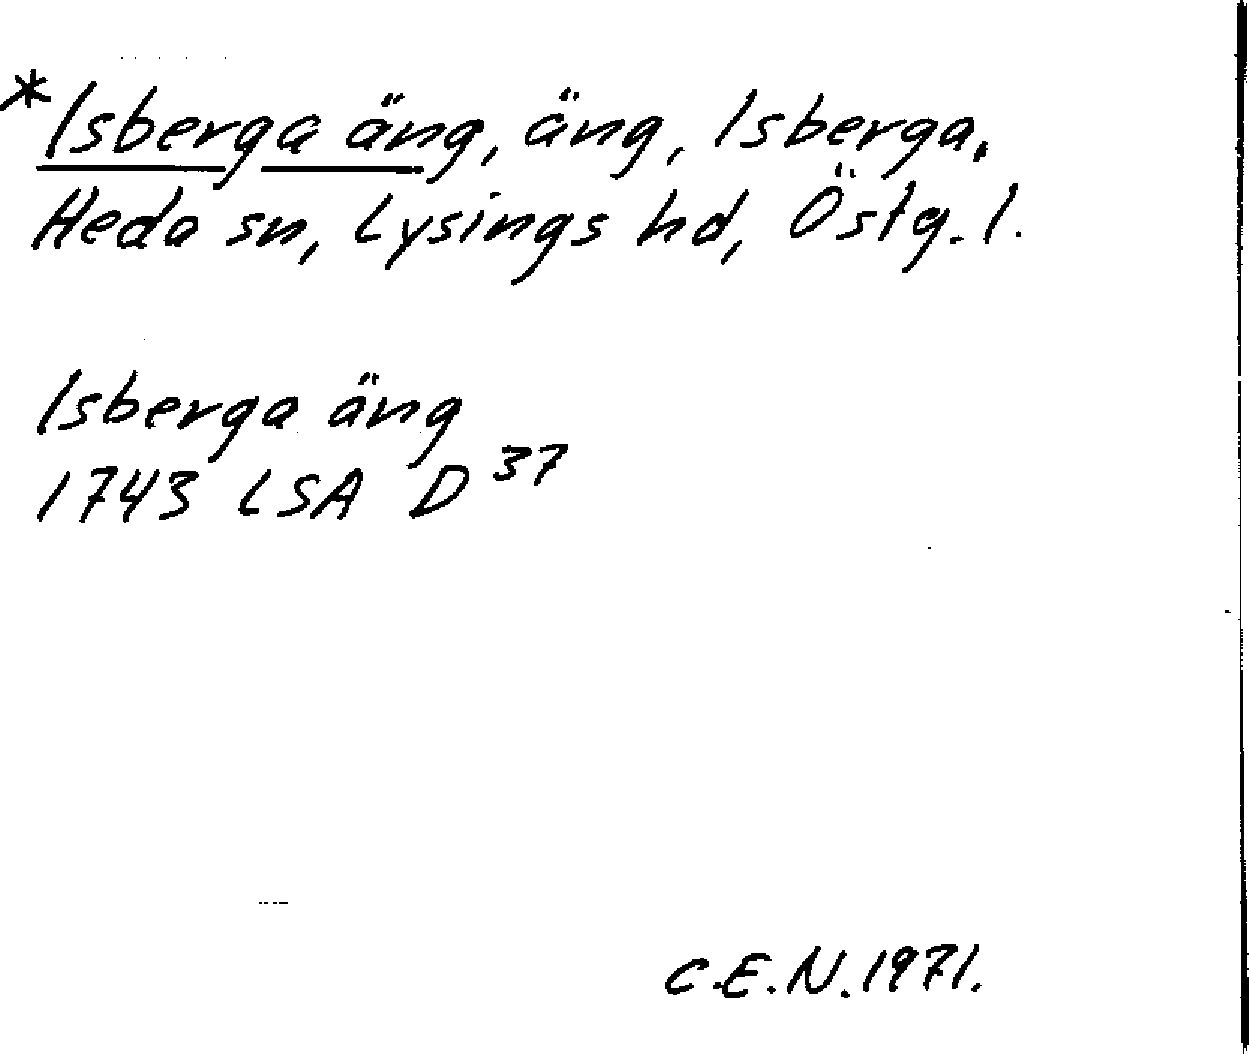 *Isberga äng, äng, Isberga,
Heda sn, Lysings hd, Östg. l.
Isberga äng
1743 LSA D 37
C.E.N. 1971.